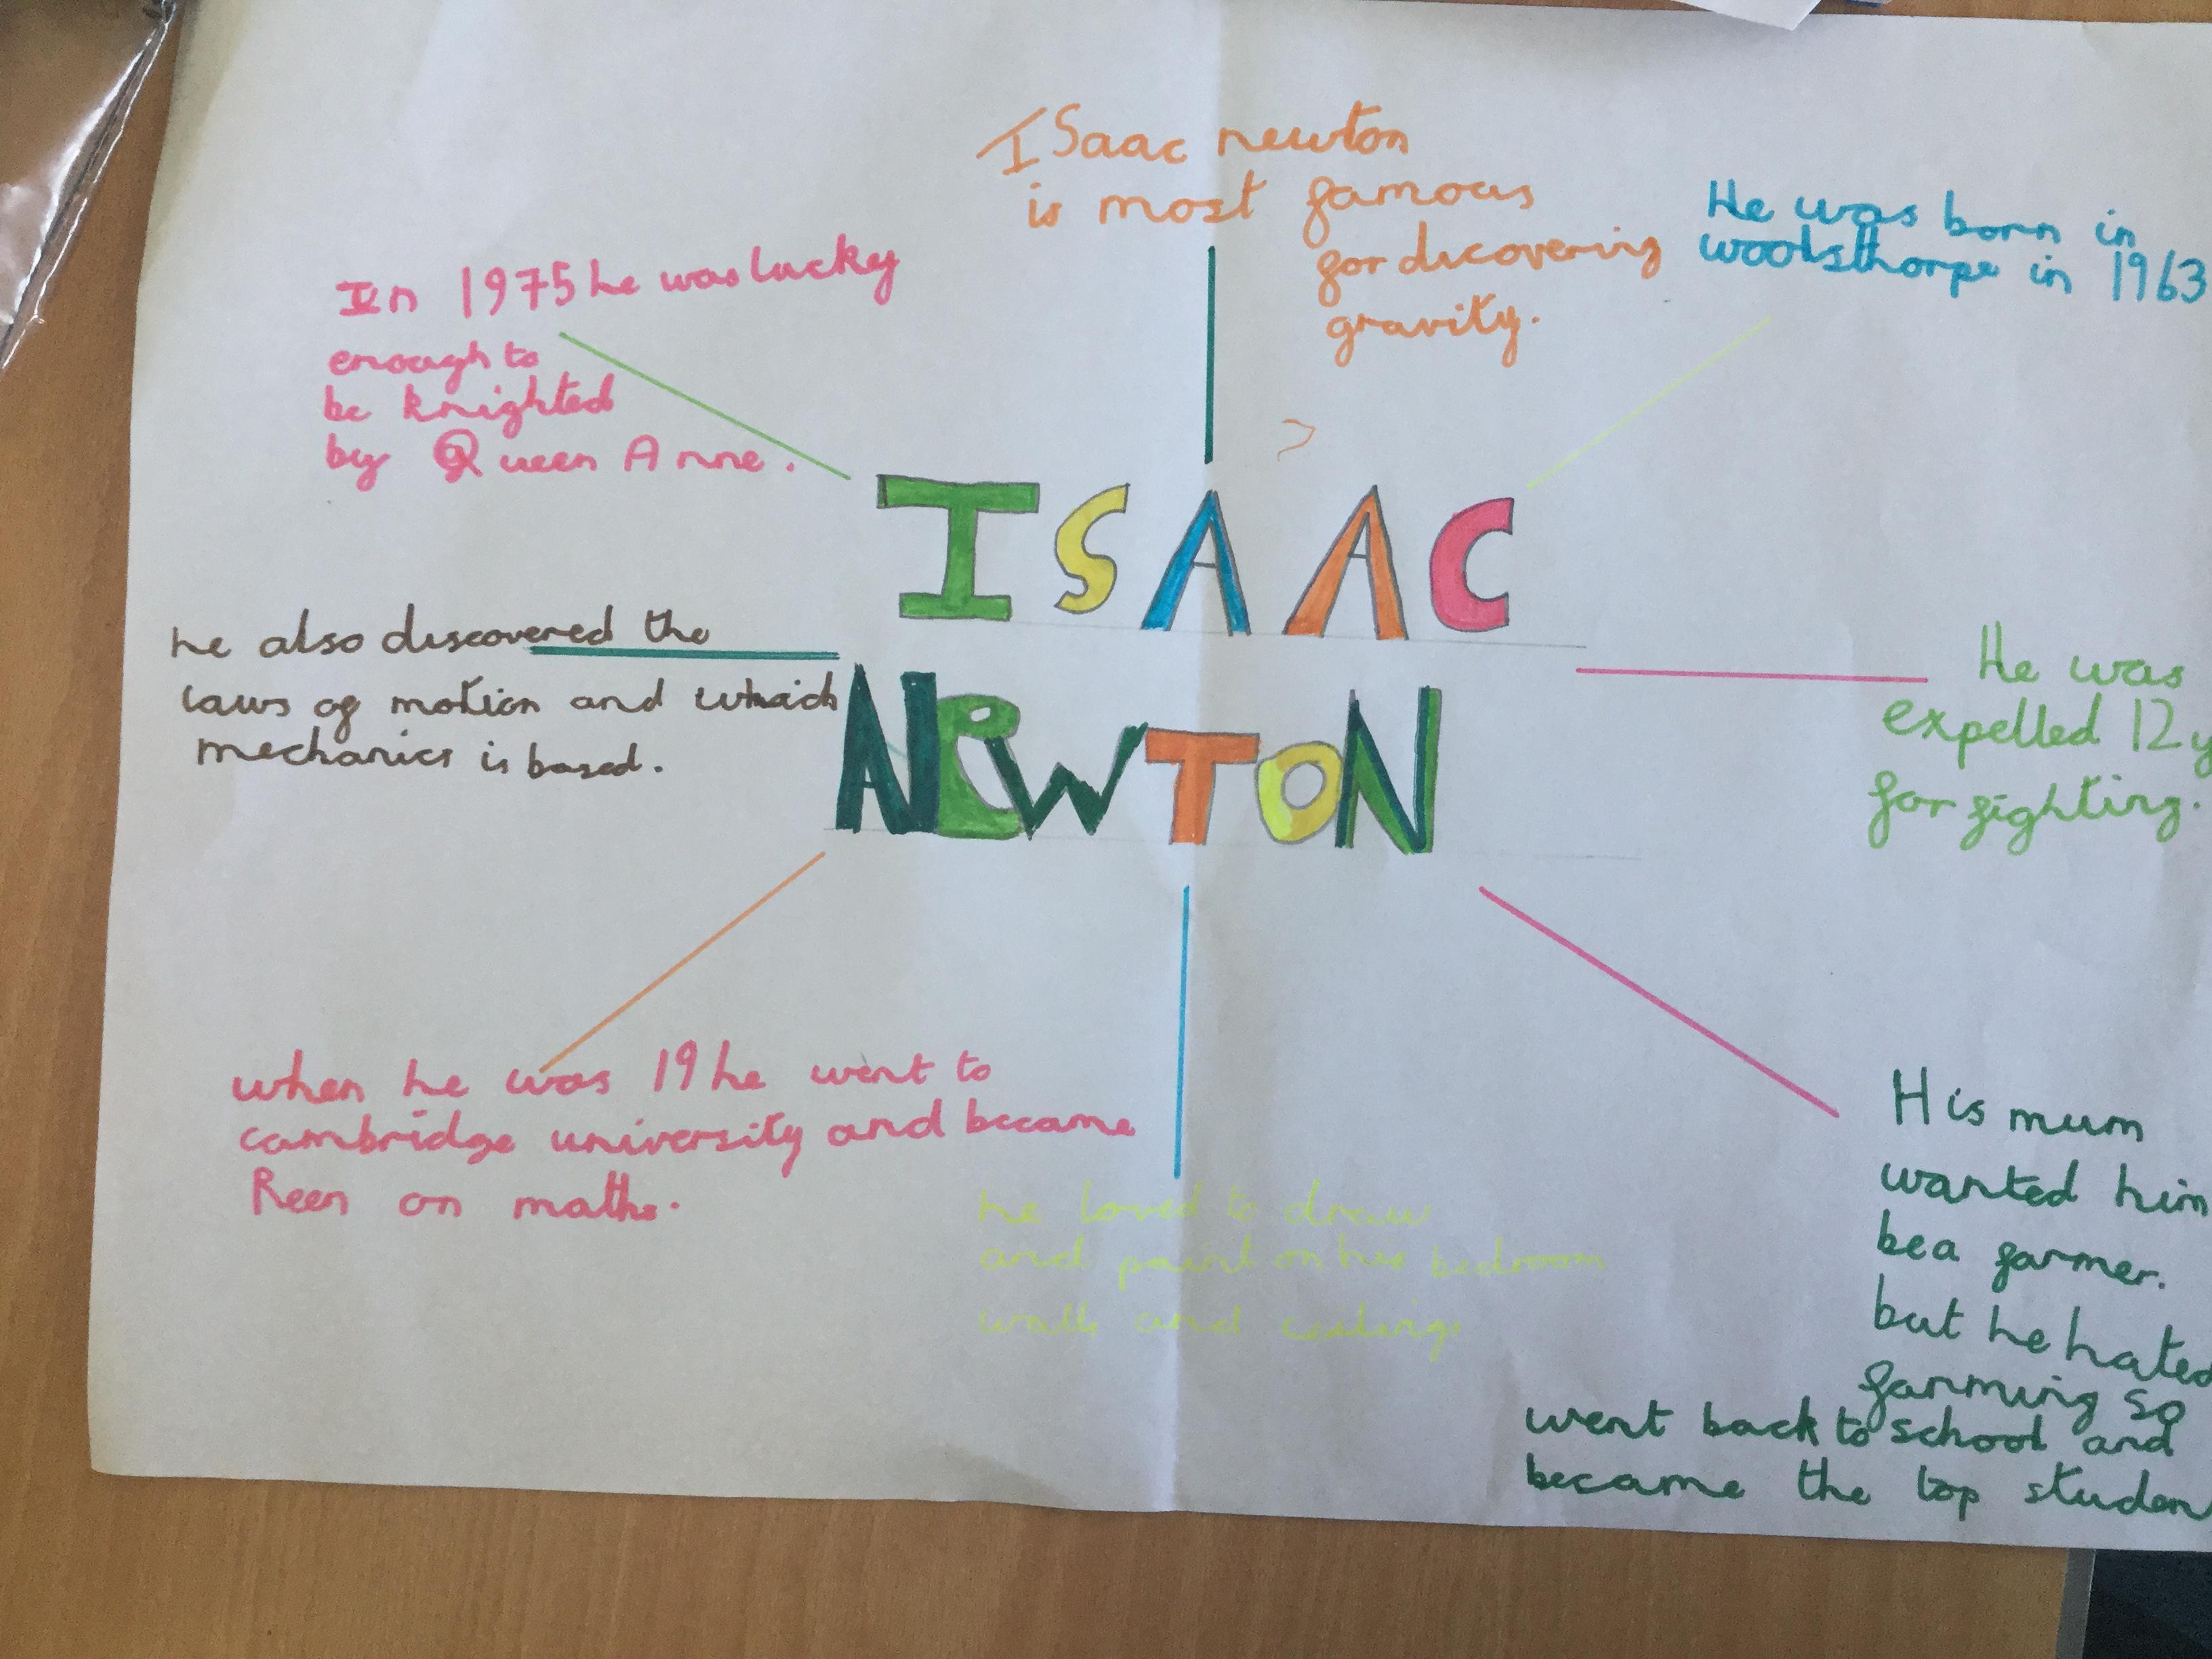 ISaac newton
is most famous
for discovering
gravity.
He was born in
woolsthorpe in 1963
In 1975 he was lucky
enough to
be knighted
by Queen Anne.
ISAAC
NEWTON
he also discovered the
laws of motion and which
mechanics is based.
He was
expelled 12 y
for fighting.
when he was 19 he went to
cambridge university and became
Keen on maths.
he loved to draw
and paint on his bedroom
walls and ceilings
His mum
wanted him
be a farmer.
but he hated
farming so
went back to school and
became the top studen